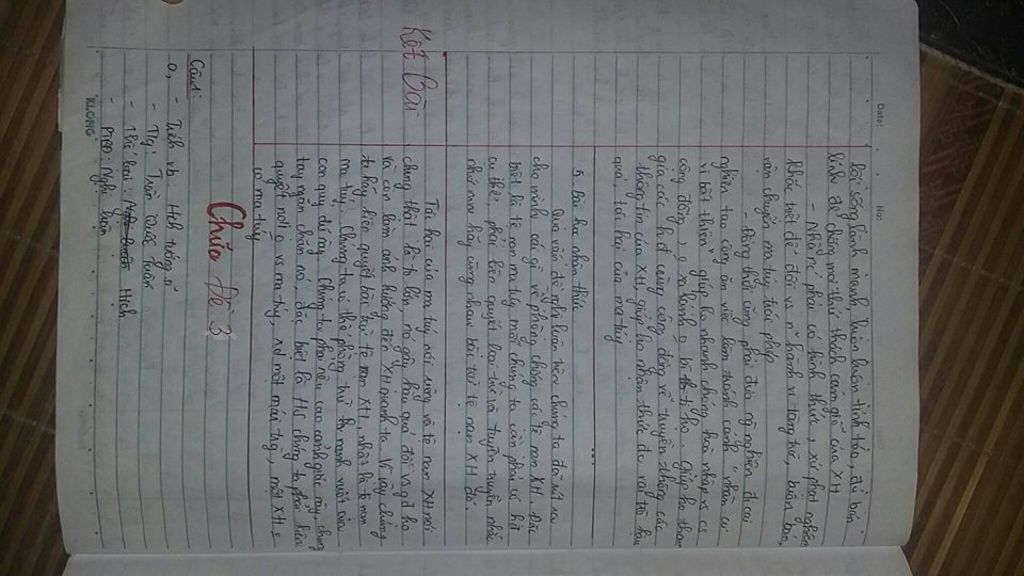 Date: No:
lối sống lành mạnh, luôn luôn tỉnh táo, đủ bản
lĩnh để chống mọi thử thách cám dỗ của XH
- Nhà nc phải có hình thức, xử phạt nghiêm
khắc triệt để đối vs n~ hành vi tàng trữ, buôn bán,
vận chuyển ma túy trái phép
- Đồng thời cũng phải đưa ng nghiện đi cai
nghiện tạo công ăn việc làm tránh cảnh "nhàn cư
vi bất thiện" giúp họ nhanh chóng hoà nhập vs
cộng đồng, o xa lánh o kì thị họ. Giúp họ tham
gia các hđ cung cộng đồng về tuyên truyền các
thông tin của XH, giúp họ nhận thức đc rõ hậu
quả, tác hại của ma túy
...
5. Bài học nhận thức
Qua vấn đề nghị luận trên chúng ta đã rút ra
cho mình cái gì về phòng chống các tệ nạn XH. Đặc
biệt là tệ nạn ma túy mỗi chúng ta cần phải có
cụ thể, phải kiên quyết loại trừ và tuyên truyền nhắc
nhở mn hãy cùng nhau bài trừ tệ nạn XH đó.
Kết Bài
Tác hại của ma túy nói riêng và tệ nạn XH nói
chung thật là to lớn, nó gây hậu quả đối vs gđ họ
và còn làm ảnh hưởng đến XH quanh ta. Vì vậy chúng
ta hãy kiên quyết bài trừ tệ nạn XH nhất là tệ nạn
ma túy. Chúng ta vì thế
con quỷ dữ ấy. Chúng ta phải nêu cao cảnh giác này, chung
tay ngăn chặn nó, đặc biệt là HS chúng ta phải kiên
quyết nói o vs ma túy, xd một mái trg, một XH
o ma túy
Chữa Đề 3
Câu 1:
a, - Tiêu vb: Hịch tướng sĩ
- Tg: Trần Quốc Tuấn
- Thể loại: Hịch
- PTBĐ: Nghị luận
KLONG